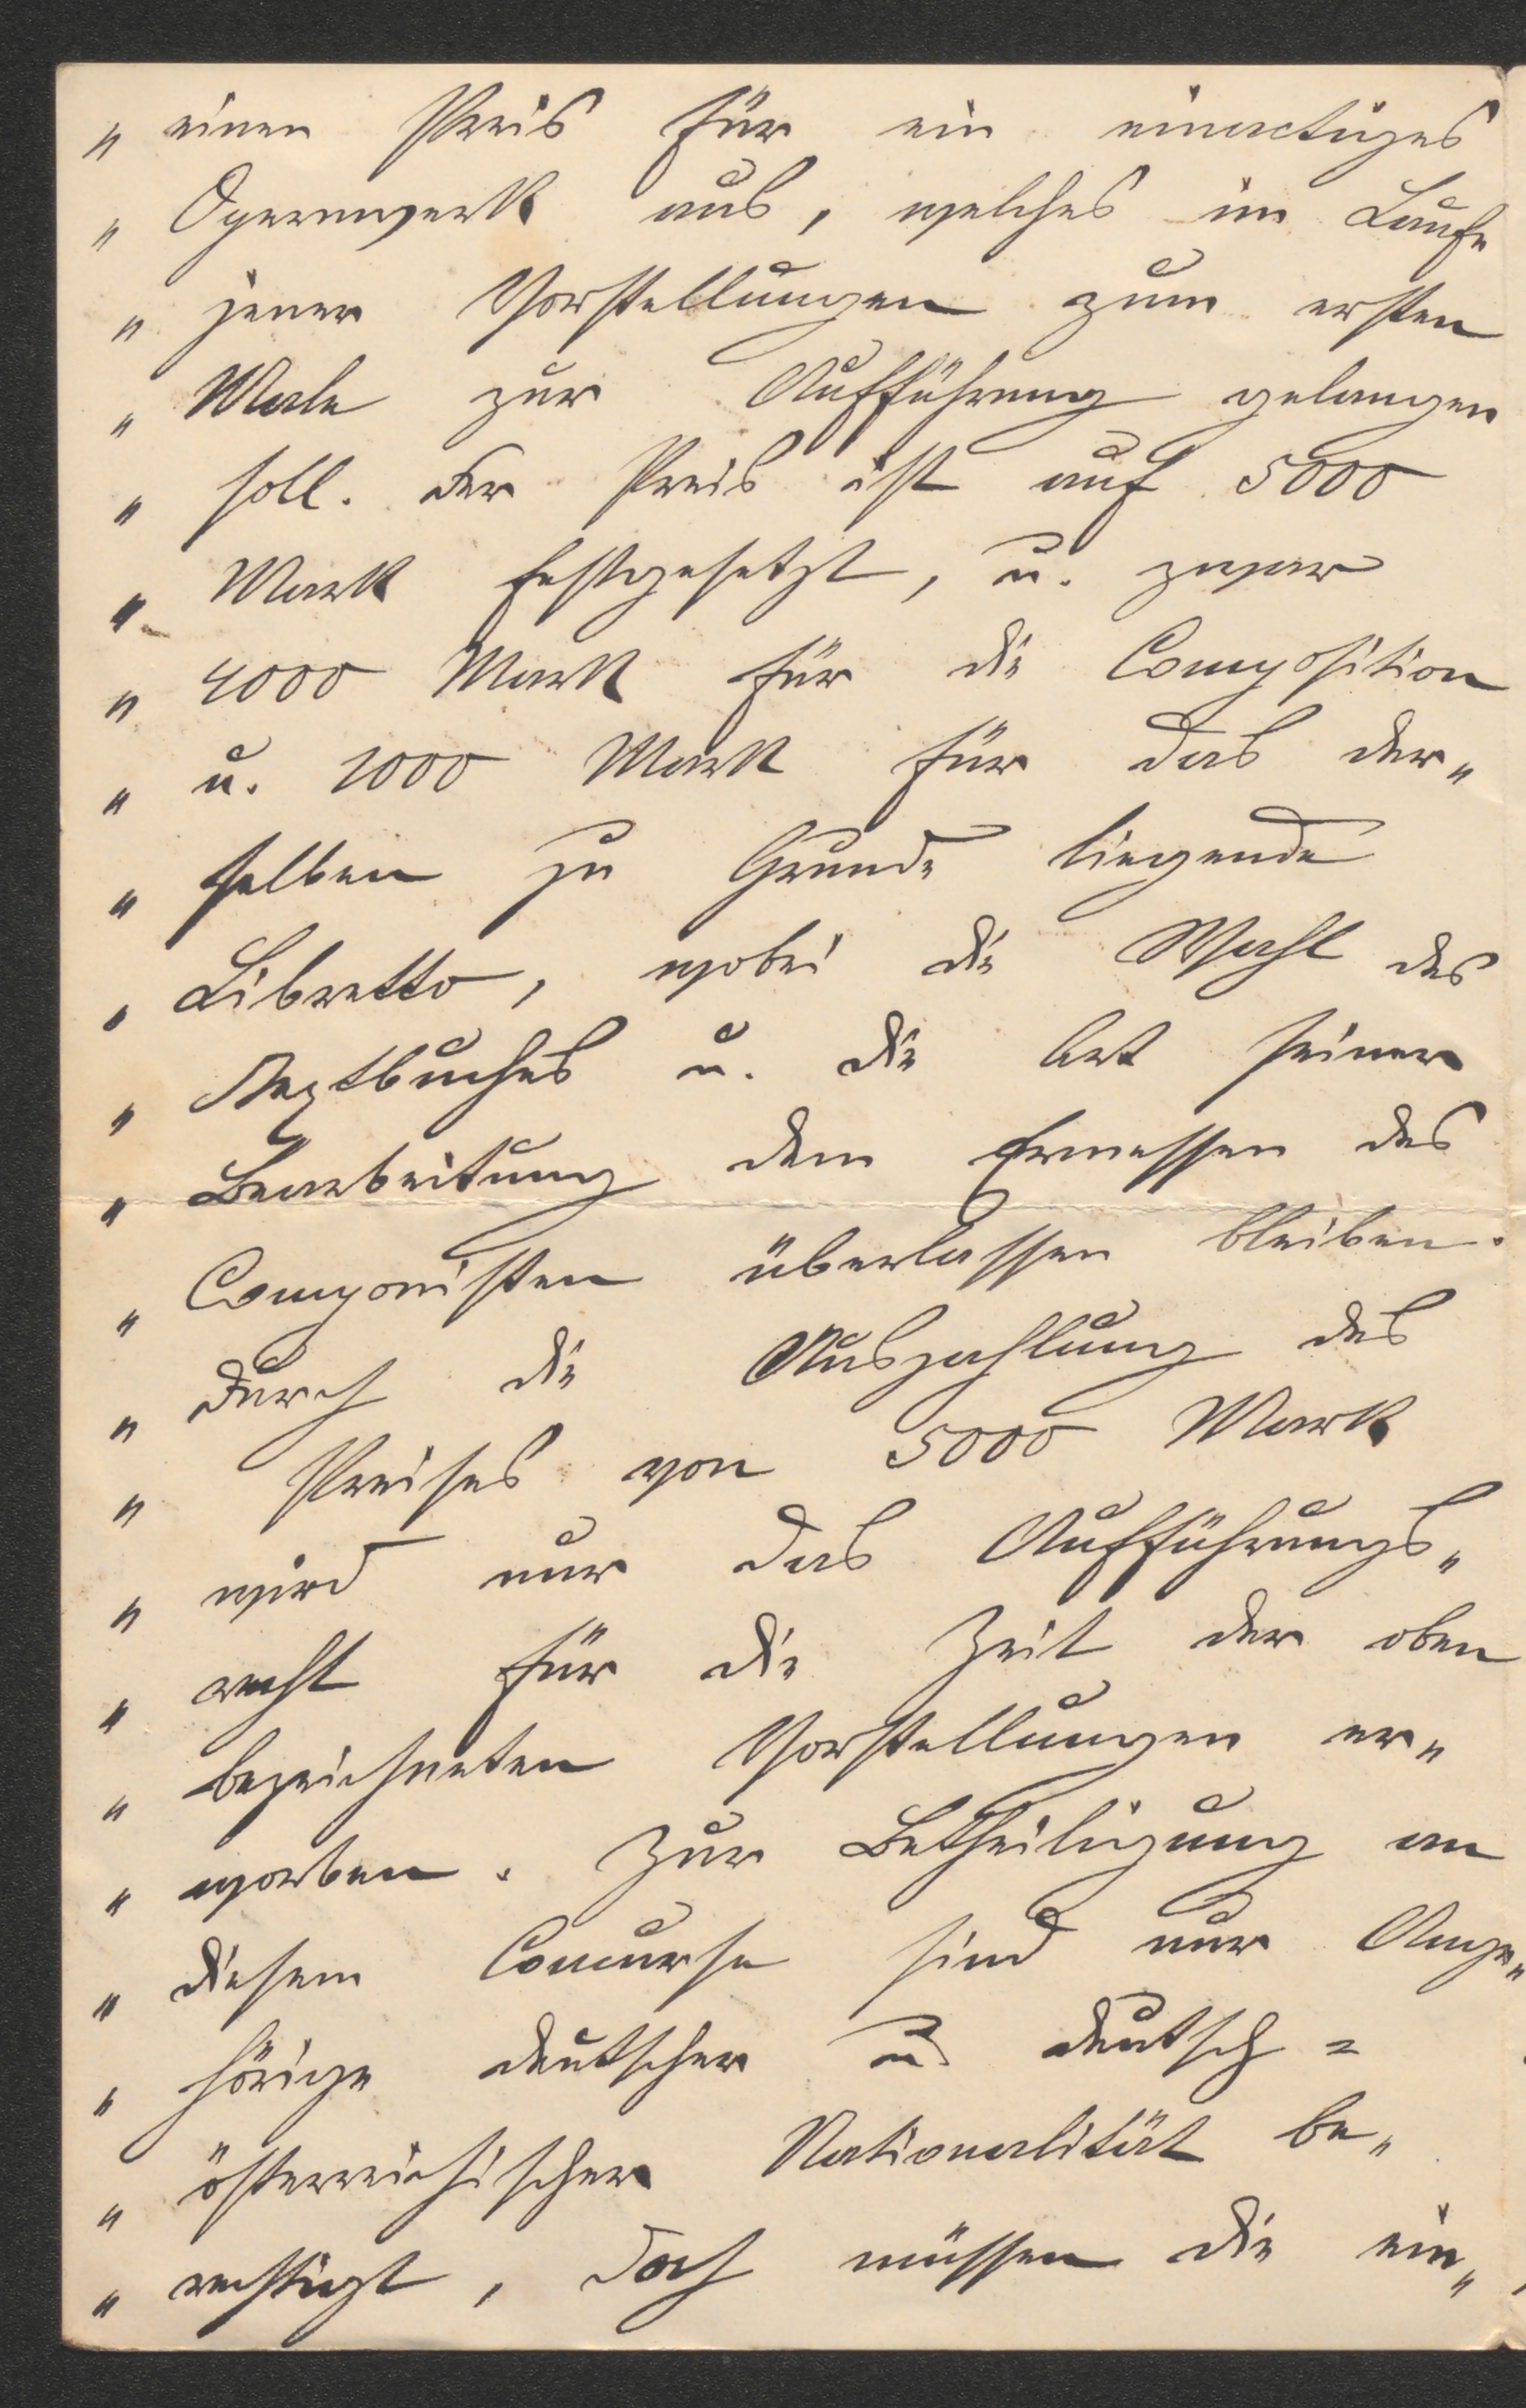 „ einen Preis für ein einactiges
„ Opernwerk aus, welches im Laufe
„ jener Vorstellungen zum ersten
„ Male zur Aufführung gelangen
„ soll. Der Preis ist auf 5000
„ Mark festgesetzt, u. zwar
„ 4000 Mark für die Composition
„ u. 1000 Mark für das der„
„ selben zu Grunde liegende
„ Libretto, wobei die Wahl des
„ Textbuches u. die Art seiner
„ Bearbeitung dem Ermessen des
„ Componisten überlassen bleiben.
„ Durch die Auszahlung des
„ Preises von 5000 Mark
„ wird nur das Aufführungs„
„ recht für die Zeit der oben
„ bezeichneten Vorstellungen er„
„ worben. Zur Betheiligung an
„ diesem Concurse sind nur Ange„
„ hörige deutscher u. deutsch =
„ österreichischer Nationalität be„
„ rechtigt, doch müssen die ein„